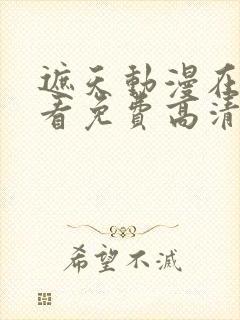 遮天動漫在
看免費高清
希望不滅